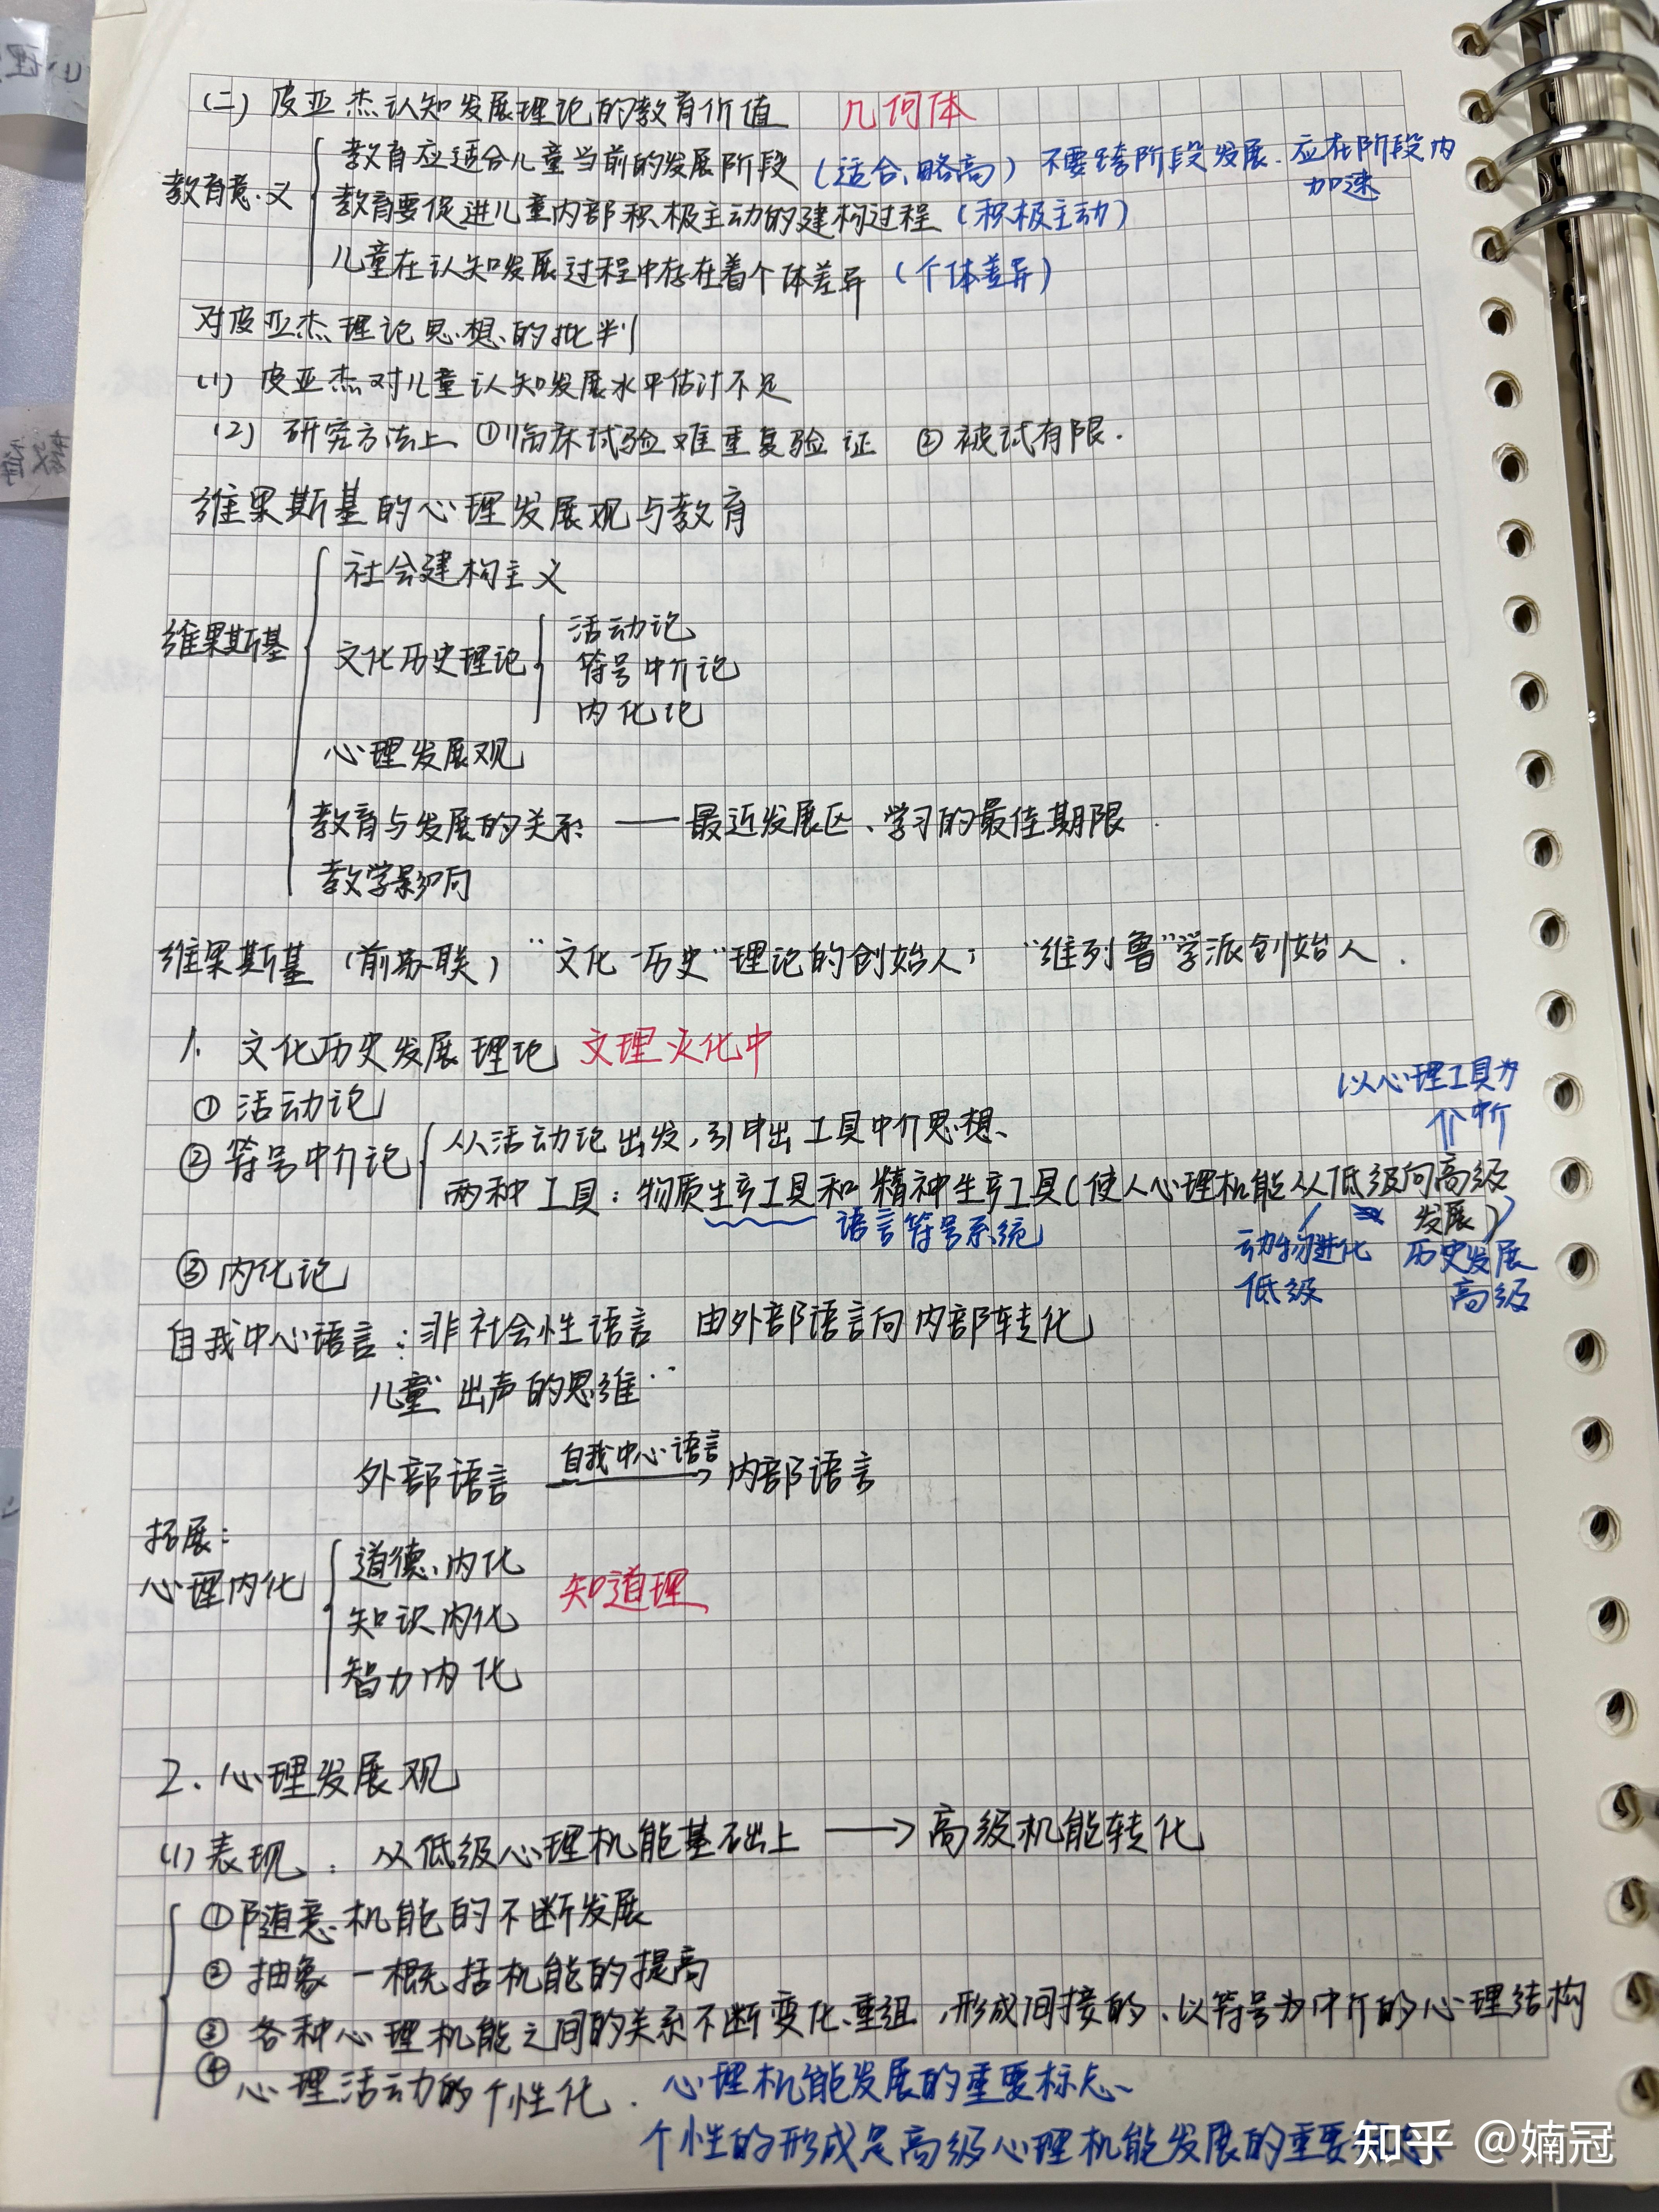 (二) 皮亚杰认知发展理论的教育价值 几何体
教育意义
教育应适合儿童当前的发展阶段 (适合、略高) 不要跨阶段发展. 应在阶段内加速
教育要促进儿童内部积极主动的建构过程 (积极主动)
儿童在认知发展过程中存在着个体差异 (个体差异)
对皮亚杰理论思想的批判
(1) 皮亚杰对儿童认知发展水平估计不足
(2) 研究方法上 ①临床试验难重复验证 ② 被试有限.
维果斯基的心理发展观与教育
维果斯基
社会建构主义
文化历史理论
活动论
符号中介论
内化论
心理发展观
教育与发展的关系 —— 最近发展区、学习的最佳期限.
教学影响
维果斯基 (前苏联) “文化-历史”理论的创始人; “维列鲁”学派创始人.
1. 文化历史发展理论 文理灭化中
① 活动论
以心理工具为中介
② 符号中介论
从活动论出发,引申出工具中介思想、
两种工具: 物质生产工具和精神生产工具(使人心理机能从低级向高级发展)
语言符号系统
动物进化 低级
历史发展 高级
③ 内化论
自我中心语言: 非社会性语言 由外部语言向内部转化
儿童“出声的思维”
外部语言 自我中心语言→ 内部语言
拓展:
心理内化
道德内化
知识内化
智力内化
知道理
2. 心理发展观
(1) 表现: 从低级心理机能基础上 → 高级机能转化
① 随意机能的不断发展
② 抽象-概括机能的提高
③ 各种心理机能之间的关系不断变化、重组,形成间接的、以符号为中介的心理结构
④ 心理活动的个性化. 心理机能发展的重要标志
个性的形成是高级心理机能发展的重要
知乎 @婻冠